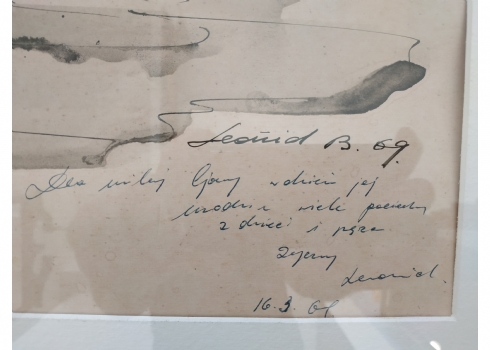 Leonid B. 69.
Dla miłej w dniu jej
urodzin wiele pociechy
z dzieci i męża
życzy
Leonid.
16.3.69